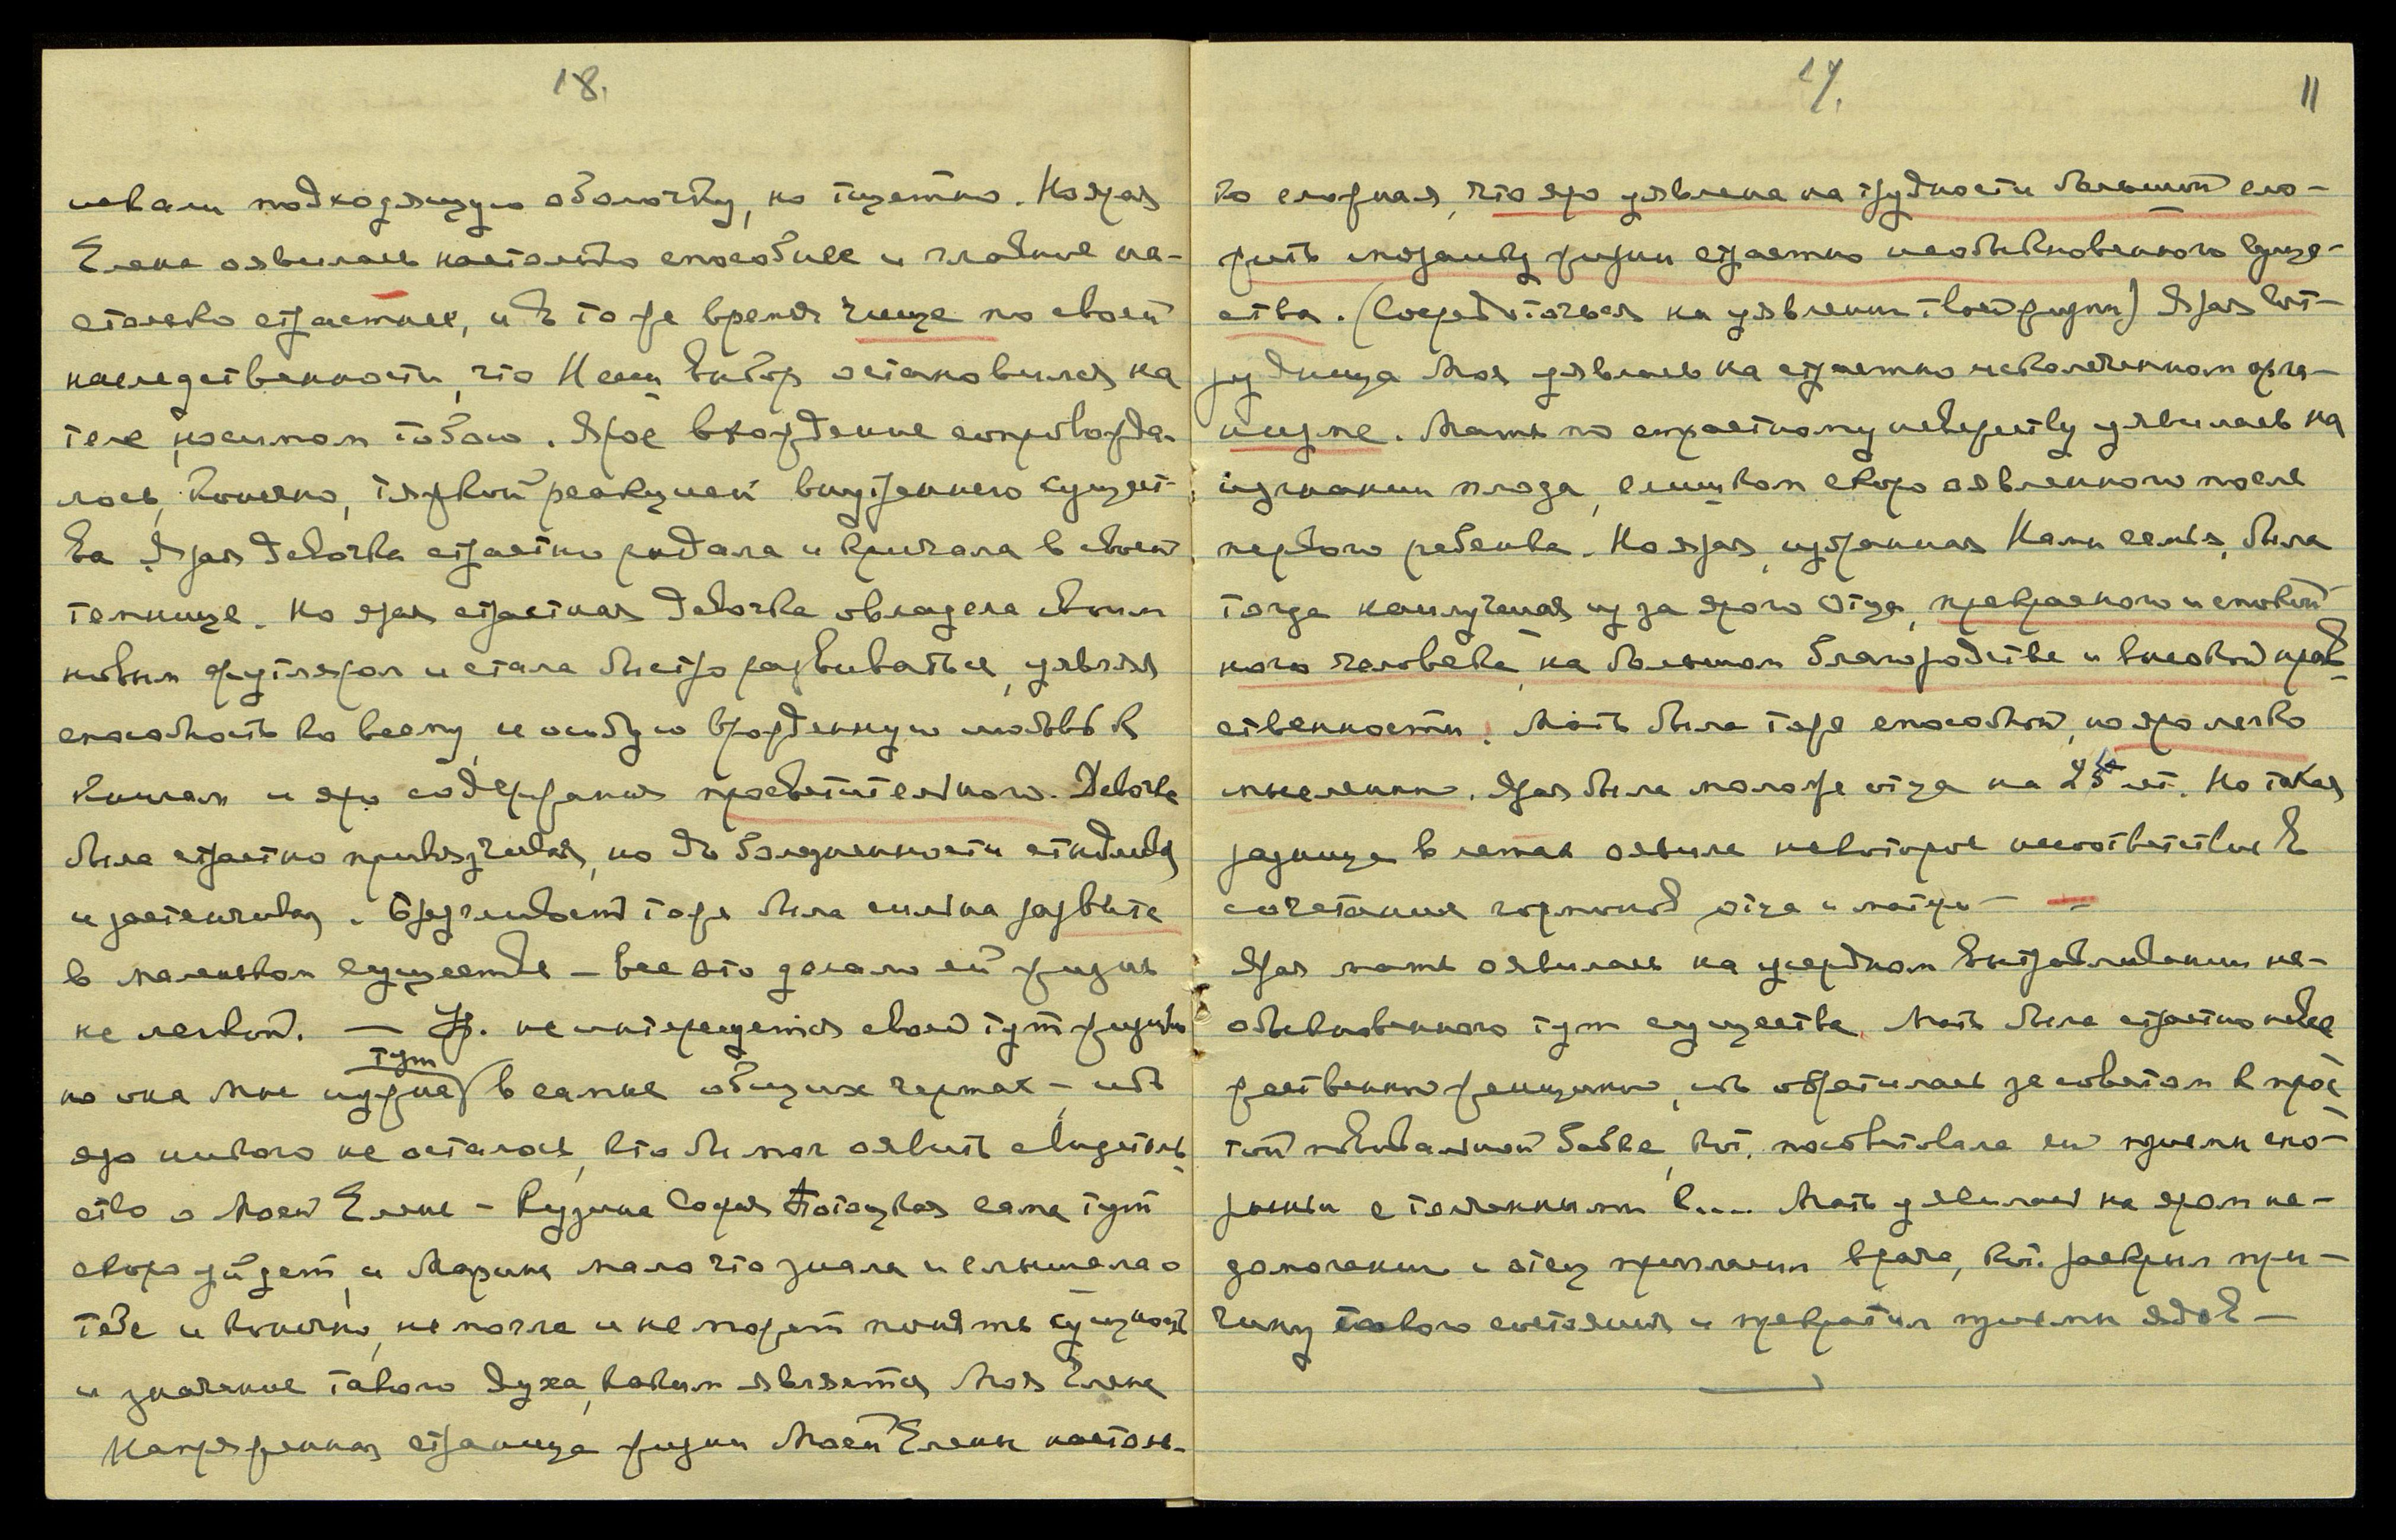 18.
искали подходящую оболочку, но тщетно. Но ярая
Елена оявилась настолько способнее и главное на-
столько страстнее, и в то же время чище по своей
наследственности, что Наш выбор остановился на
теле, носимом тобою. Ярое вхождение сопровожда-
лось, конечно, тяжкой реакцией внутреннего сущест-
ва. Ярая девочка страстно рыдала и кричала в своей
темнице. Но ярая страстная девочка овладела своим
новым футляром и стала быстро развиваться, уявляя
способность ко всему, и особую врожденную любовь к
книгам и яро содержания просветительного. Девочка
была страстно привязчивая, но до болезненности стыдливая
и застенчивая. Брезгливость тоже была сильна развита
в маленьком существе – все это делало ей жизнь
не легкой. – Ур. не интересуется своей тут жизнью
но она мне нужна тут в самых общих чертах – ибо
яро никого не осталось, кто бы мог оявить свидетель-
ство о Моей Елене – Кузина Софья Потоцкая сама тут
скоро уйдет, и Марина мало что знала и слышала о
тебе и конечно, не могла и не может понять сущность
и значение такого Духа, каким является Моя Елена
Напряженная страница жизни Моей Елены настоль-
19.
11
ко сложная, что яро уявлена на трудности большой сло-
жить мозаику жизни страстно необыкновенного суще-
ства. (Сосредоточься на уявлении твоей жизни) Ярая сот-
рудница Моя уявлась на страстно искалеченном орга-
низме. Мать по страстному невежеству уявилась на
изгнании плода, слишком скоро оявленного после
первого ребенка. Но ярая, избранная Нами семья, была
тогда наилучшая из за ярого Отца, прекрасного и спокой-
ного человека, на большом благородстве и высокой нрав-
ственности. Мать была тоже способной, но яро легко
мысленной. Ярая была моложе отца на лет. Но такая
разница в летах оявила некоторое несоответствие в
сочетании гормонов отца и матери –
Ярая мать оявилась на усердном вытравливании не-
обыкновенного тут существа. Мать была страстно неве-
жественной женщиной, ибо обратилась за советом к прос-
той повивальной бабке, кот. посоветовала ей приемы спо-
рыньи с толченными с.... Мать уявилась на яром не-
домогании и отец пригласил врача, кот. раскрыл при-
чину такого состояния и прекратил приемы ядов –